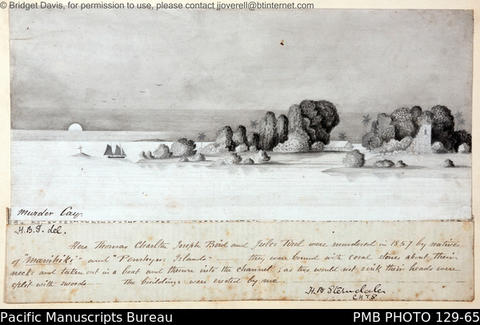 © Bridget Davis, for permission to use, please contact jjoverell@btinternet.com
Murder Cay.
H.B.S. del.
Here Thomas Charlton Joseph Bird and Jules Tirel were murdered in 1857 by natives
of "Manihiki" and "Penrhyn Islands" they were bound with coral stones about their
necks and taken out in a boat and thrown into the channel; as they would not sink their heads were
split with swords. The buildings were erected by me
H. B. Sterndale
Pacific Manuscripts Bureau
PMB PHOTO 129-65